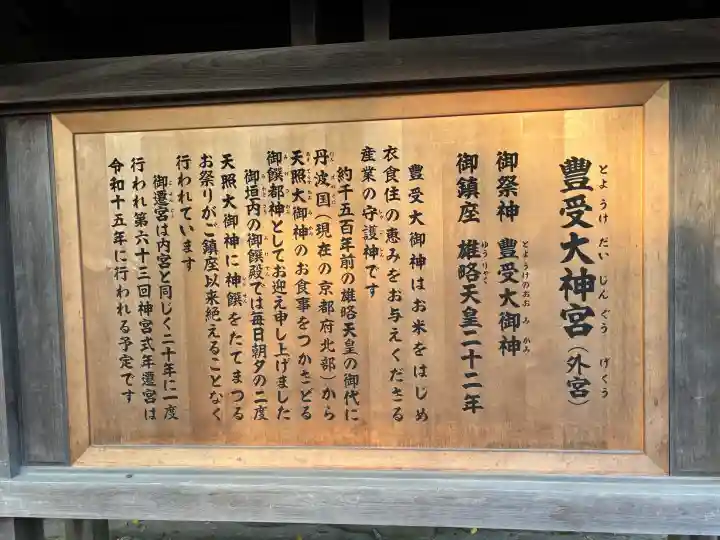 豊受大神宮(外宮)
御祭神 豊受大御神
御鎮座 雄略天皇二十二年
豊受大御神はお米をはじめ
衣食住の恵みをお与えくださる
産業の守護神です
約千五百年前の雄略天皇の御代に
丹波国(現在の京都府北部)から
天照大御神のお食事をつかさどる
御饌都神としてお迎え申し上げました
御垣内の御饌殿では毎日朝夕の二度
天照大御神に神饌をたてまつる
お祭りがご鎮座以来絶えることなく
行われています
御遷宮は内宮と同じく二十年に一度
行われ第六十三回神宮式年遷宮は
令和十五年に行われる予定です